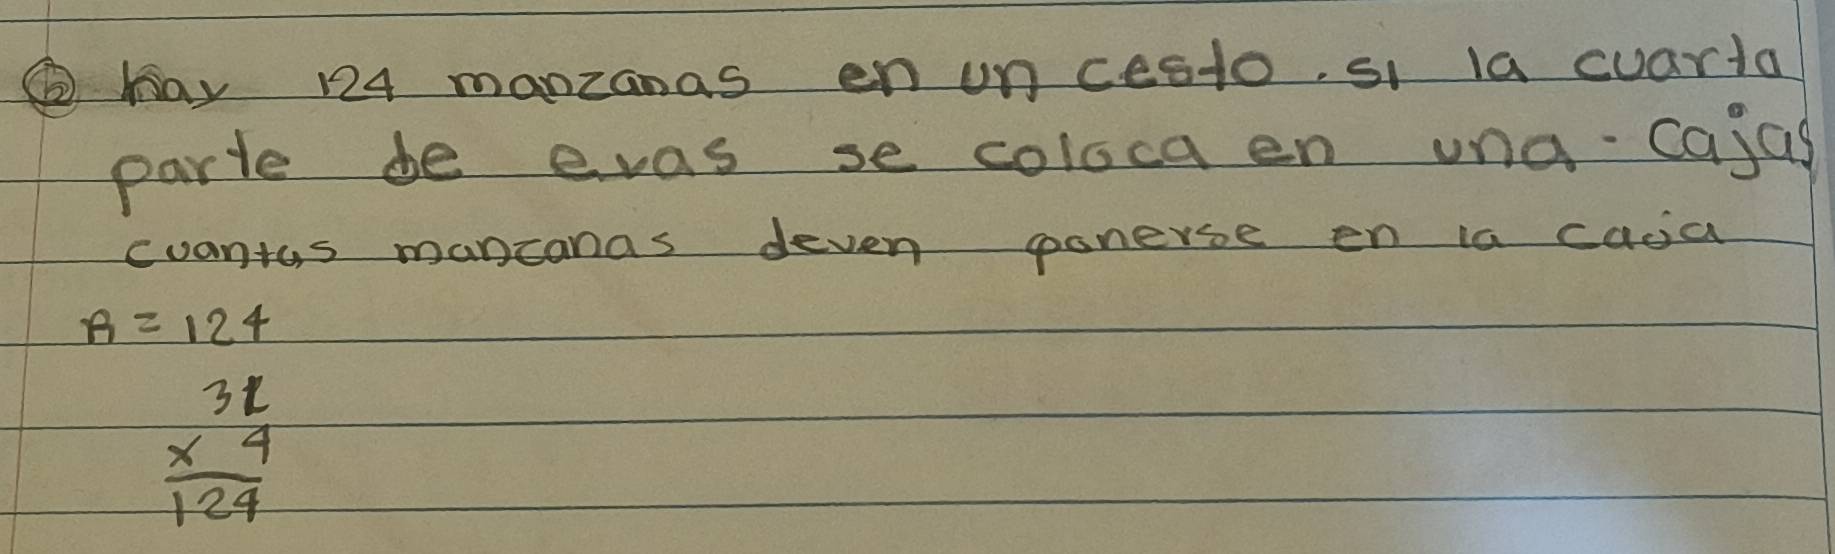 ⑥ hay 124 manzanas en un cesto. si la cuarta
parte de evas se coloca en una cajas
cuantas manzanas deven ponerse en la caja
A = 124
31
x 4
124